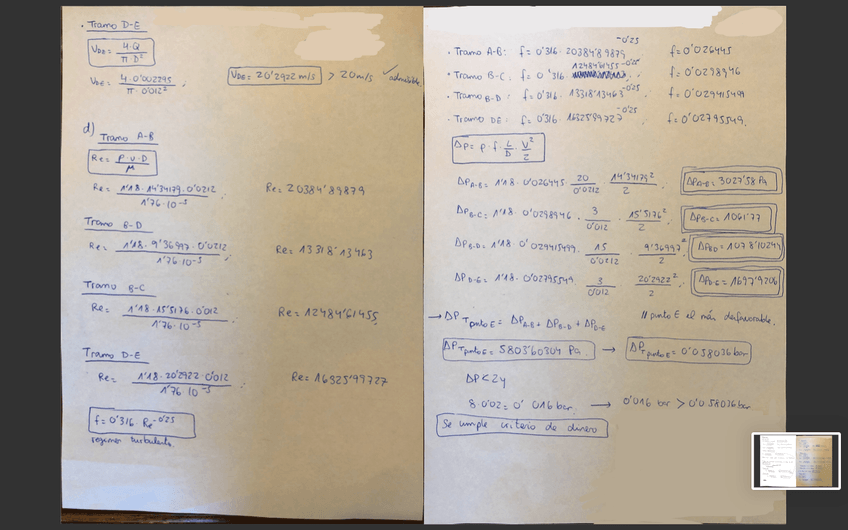 · Tramo D-E
V_DE = 4·Q / π·D²
V_DE = 4·0'002295 / π·0'012² ; V_DE = 20'2922 m/s > 20 m/s ✓ admisible
d) Tramo A-B
Re = ρ·v·D / μ
Re = 1'18·14'34179·0'0212 / 1'76·10⁻⁵ ; Re = 20384'89879
Tramo B-D
Re = 1'18·9'36997·0'0212 / 1'76·10⁻⁵ ; Re = 13318'13463
Tramo B-C
Re = 1'18·15'5176·0'012 / 1'76·10⁻⁵ ; Re = 12484'61455
Tramo D-E
Re = 1'18·20'2922·0'012 / 1'76·10⁻⁵ ; Re = 16325'99727
f = 0'316·Re^-0'25
regimen turbulento
· Tramo A-B: f = 0'316·20384'89879^-0'25 ; f = 0'026445
· Tramo B-C: f = 0'316·12484'61455^-0'25 ; f = 0'0298946
· Tramo B-D: f = 0'316·13318'13463^-0'25 ; f = 0'029415499
· Tramo DE: f = 0'316·16325'99727^-0'25 ; f = 0'02795549
ΔP = ρ·f·L/D·V²/2
ΔP_A-B = 1'18·0'026445·20/0'0212·14'34179²/2 ΔP_A-B = 3027'58 Pa
ΔP_B-C = 1'18·0'0298946·3/0'012·15'5176²/2 ΔP_B-C = 1061'77
ΔP_B-D = 1'18·0'029415499·15/0'0212·9'36997²/2 ΔP_BD = 1078'10244
ΔP_D-E = 1'18·0'02795549·3/0'012·20'2922²/2 ΔP_D-E = 1697'9206
→ ΔP_T punto E = ΔP_A-B + ΔP_B-D + ΔP_D-E // punto E el más desfavorable.
ΔP_T punto E = 5803'60304 Pa. → ΔP_T punto E = 0'058036 bar
ΔP < 2%
8·0'02 = 0'016 bar → 0'016 bar > 0'058036 bar
Se cumple criterio de